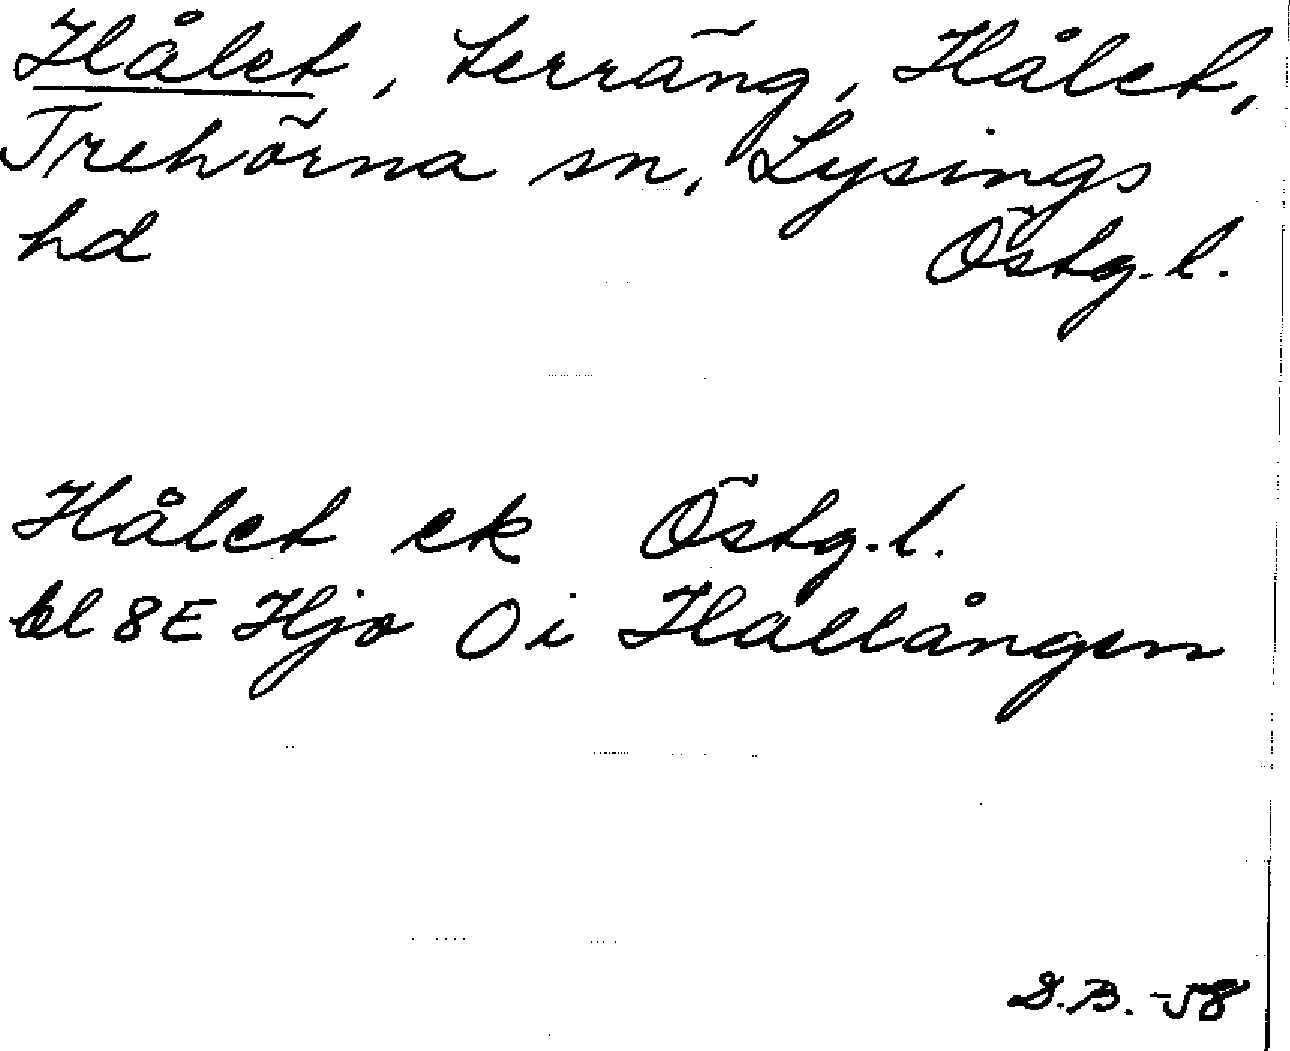 Hålet, terräng, Hålet,
Trehörna sn, Lysings
hd Östg. l.
Hålet ek Östg. l.
bl 8E Hjo O i Hallången
S.B. -58